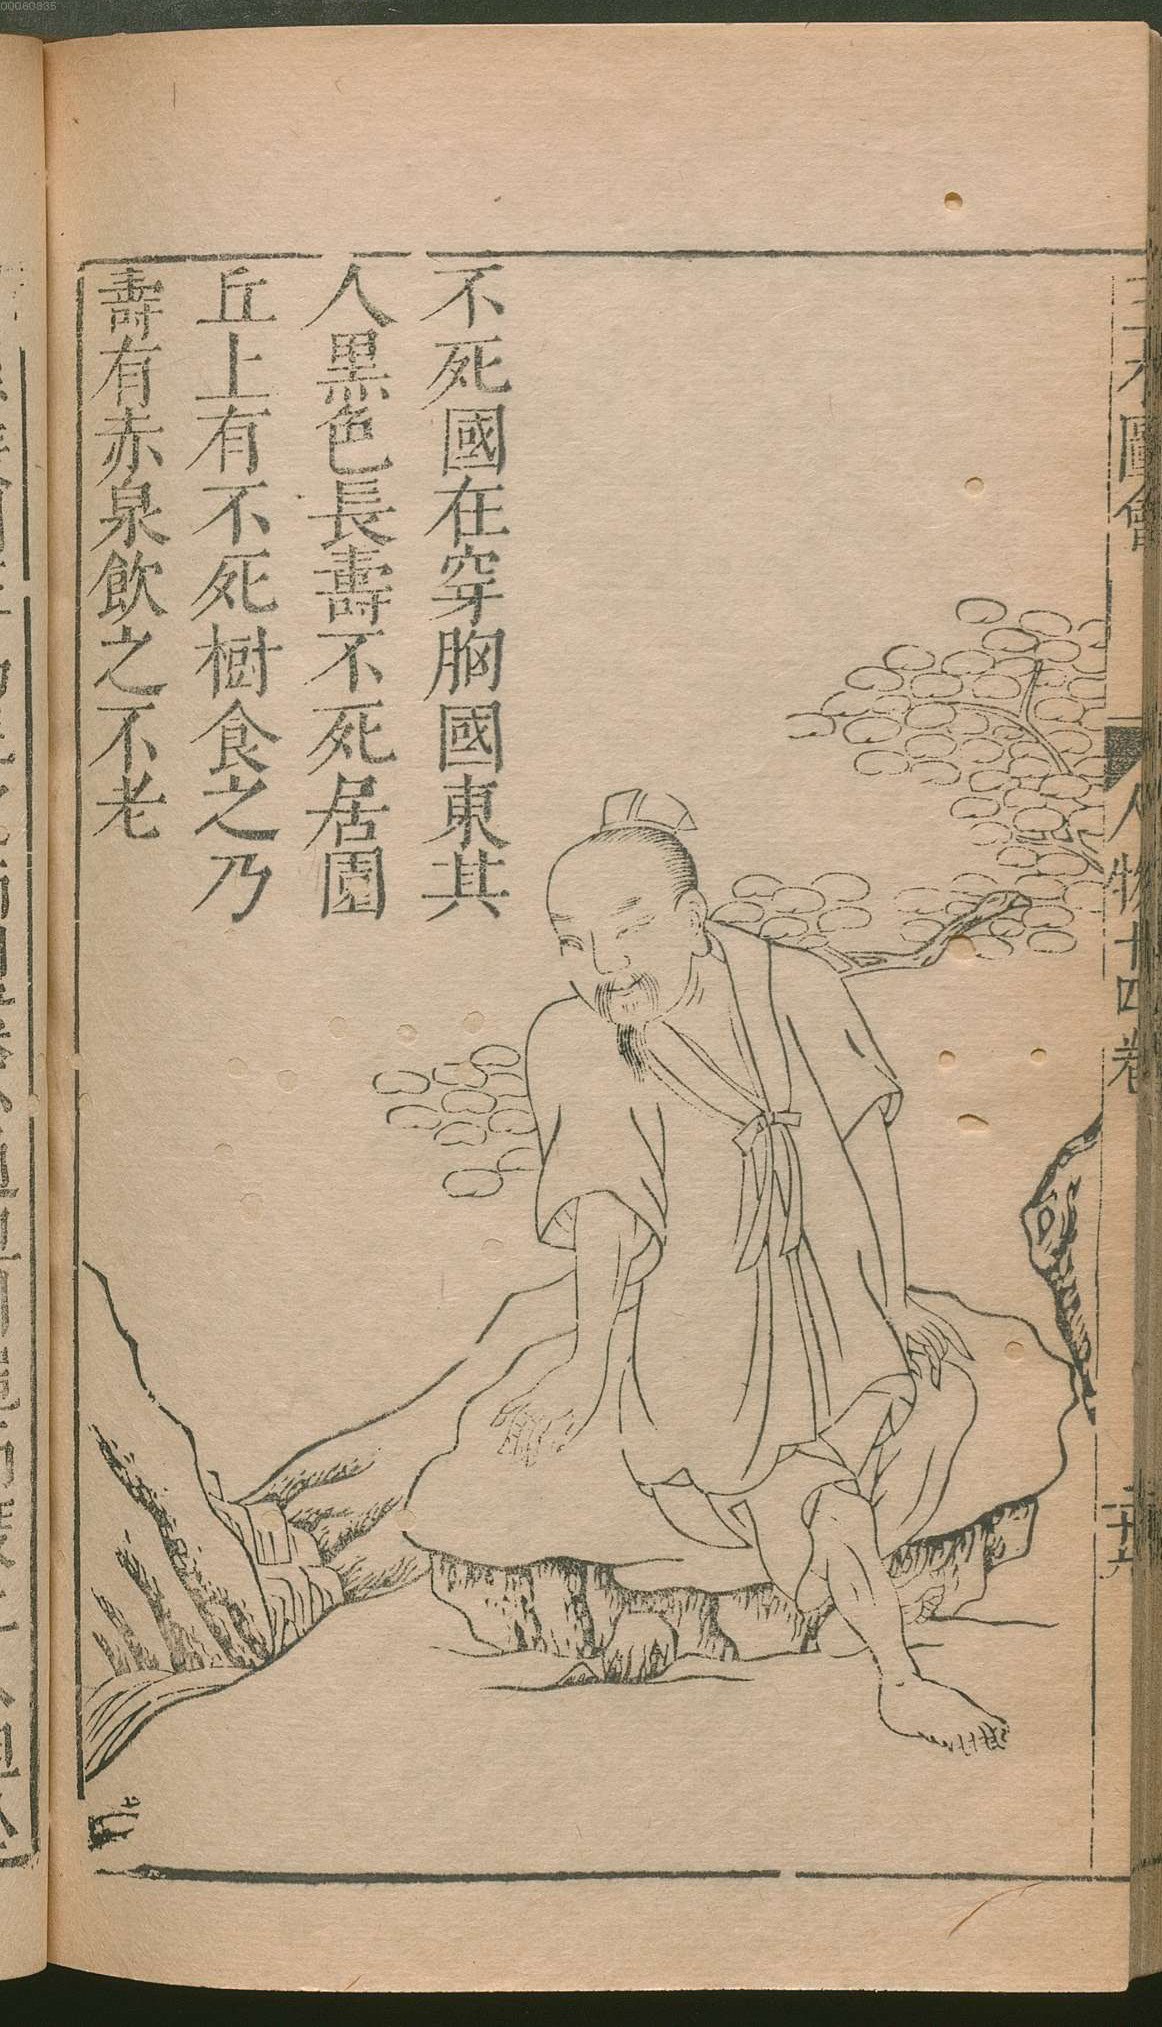 不死國在穿胸國東其
人黑色長壽不死居園
丘上有不死樹食之乃
壽有赤泉飲之不老
三才圖會
人物十四卷
00060835